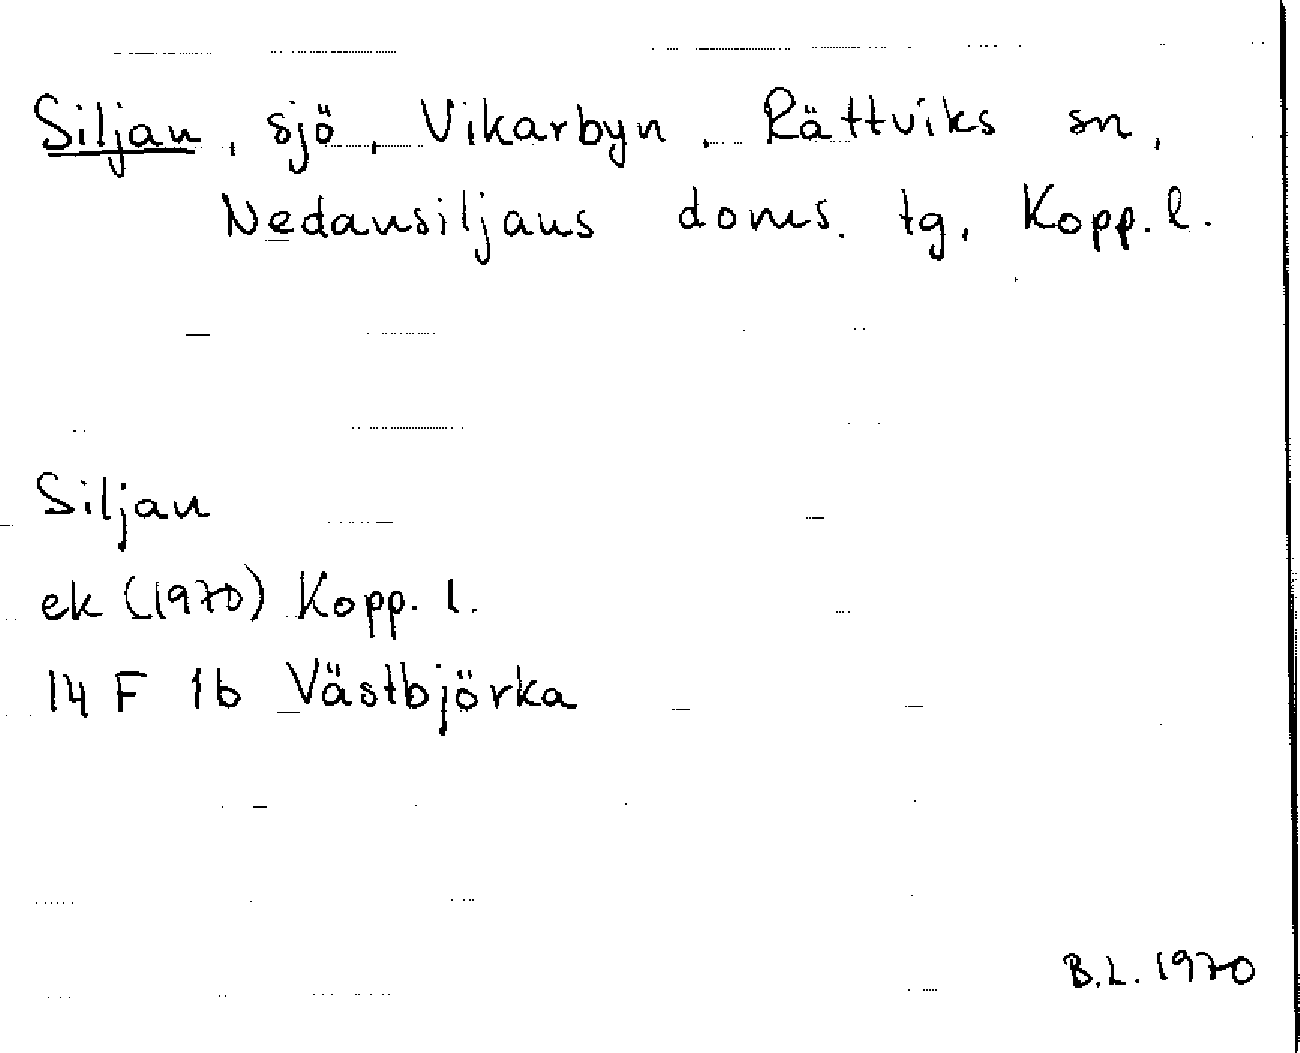 Siljan, sjö, Vikarbyn, Rättviks sn,
Nedansiljans doms. tg, Kopp. l.
Siljan
ek (1970) Kopp. l.
14 F 1b Västbjörka
B.L. 1970